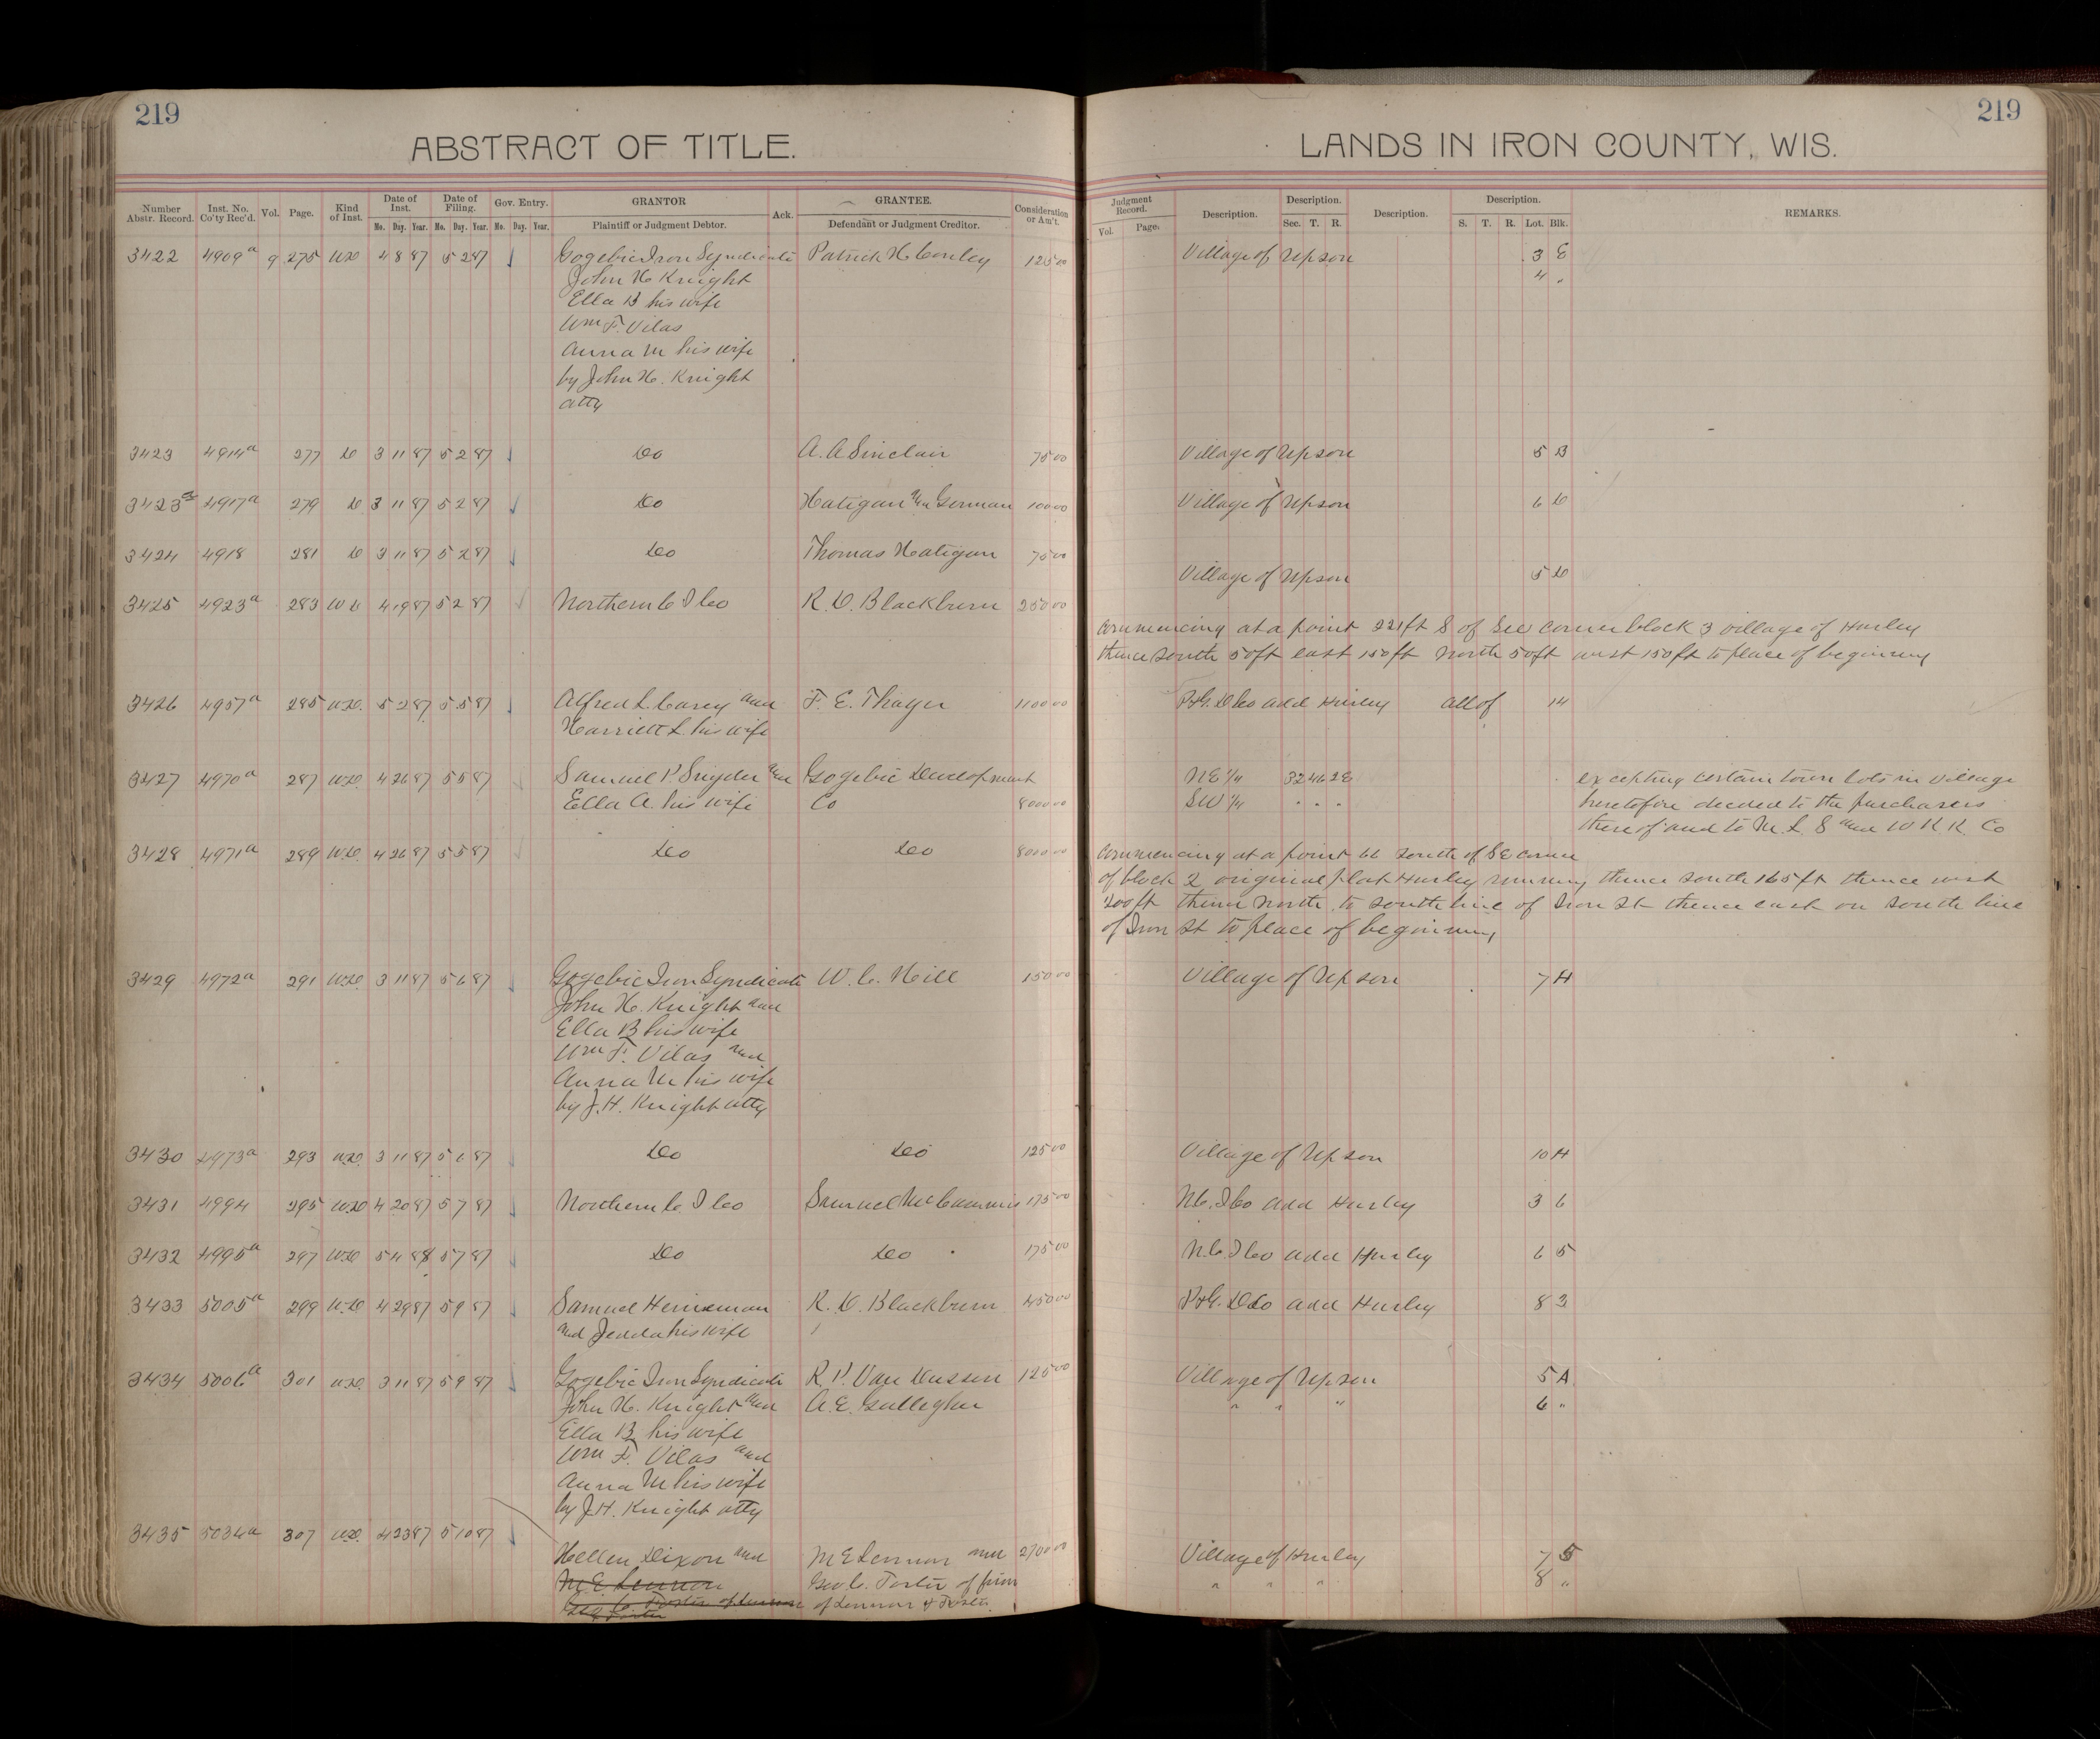 219
219
ABSTRACT OF TITLE.
LANDS IN IRON COUNTY, WIS.
Number Abstr. Record. Inst. No. Co'ty Rec'd. Vol. Page. Kind of Inst. Date of Inst. Mo. Day. Year. Date of Filing. Mo. Day. Year. Gov. Entry. Mo. Day. Year. GRANTOR Plaintiff or Judgment Debtor. Ack. GRANTEE. Defendant or Judgment Creditor. Consideration or Am't.
Judgment Record. Vol. Page. Description. Description. Sec. T. R. Description. Description. S. T. R. Lot. Blk. REMARKS.
3422 4909a 9 275 WD 4 8 87 5 2 87 Gogebic Iron Syndicate Patrick H Conley 125 00 Village of Upson 3 E
John H Knight 4 "
Ella B his wife
Wm F. Vilas
Anna M his wife
by John H. Knight
atty
3423 4914a 277 D 3 11 87 5 2 87 Do A. A Sinclair 75 00 Village of Upson 5 B
3423 4917a 279 D 3 11 87 5 2 87 Do Hatigan and Gorman 100 00 Village of Upson 6 D
3424 4918 281 D 3 11 87 5 2 87 Do Thomas Hatigan 75 00
Village of Upson 5 D
3425 4923a 283 WD 4 19 87 5 2 87 Northern C I Co R. D. Blackburn 250 00
Commencing at a point 221 ft S of corner block 3 village of Hurley
thence south 50 ft east 150 ft north 50 ft west 150 ft to place of beginning
3426 4957a 285 WD. 5 2 87 5 5 87 Alfred L. Carey and F. E. Thayer 1100 00 Co add Hurley all of 14
Harriett L. his wife
3427 4970a 287 WD. 4 26 87 5 5 87 Samuel P. Snyder and Gogebic Development NE 1/4 32 46 2E excepting certain town lots in village
Ella A. his wife Co 8000 00 SW 1/4 " " " heretofore deeded to the purchasers
thereof and to M. L. S and W R R. Co
3428 4971a 289 WD. 4 26 87 5 5 87 Do Do 8000 00 Commencing at a point 66 south of SE corner
of block 2 original plat Hurley running thence south 165 ft thence west
200 ft thence north to south line of Iron St thence east on south line
of Iron St to place of beginning
3429 4972a 291 WD. 3 11 87 5 6 87 Gogebic Iron Syndicate W. C. Hill 150 00 Village of Upson 7 H
John H. Knight and
Ella B his wife
Wm F. Vilas and
Anna M his wife
by J. H. Knight atty
3430 4973a 293 WD. 3 11 87 5 6 87 Do Do 125 00 Village of Upson 10 H
3431 4994 295 WD 4 20 87 5 7 87 Northern C. I Co Samuel 175 00 N.C. I Co add Hurley 3 6
3432 4995a 297 WD 5 4 88 5 7 87 Do Do 175 00 N.C. I Co add Hurley 6 5
3433 5005a 299 WD 4 29 87 5 9 87 Samuel Heineman R. D. Blackburn 450 00 Co add Hurley 8 3
and his wife
3434 5006a 301 WD. 3 11 87 5 9 87 Gogebic Iron Syndicate R. P. Van Dussen 125 00 Village of Upson 5 A
John H. Knight and A. E. Gallegher " " " 6 "
Ella B his wife
Wm F. Vilas and
Anna M his wife
by J. H. Knight atty
3435 5034a 307 WD. 4 23 87 5 10 87
Hellen Dixon and M E Lennon and 2700 00 Village of Hurley 7 5
M E Lennon Geo C. Foster of firm " " " 8 "
Geo C. Foster of Lennon of Lennon & Foster